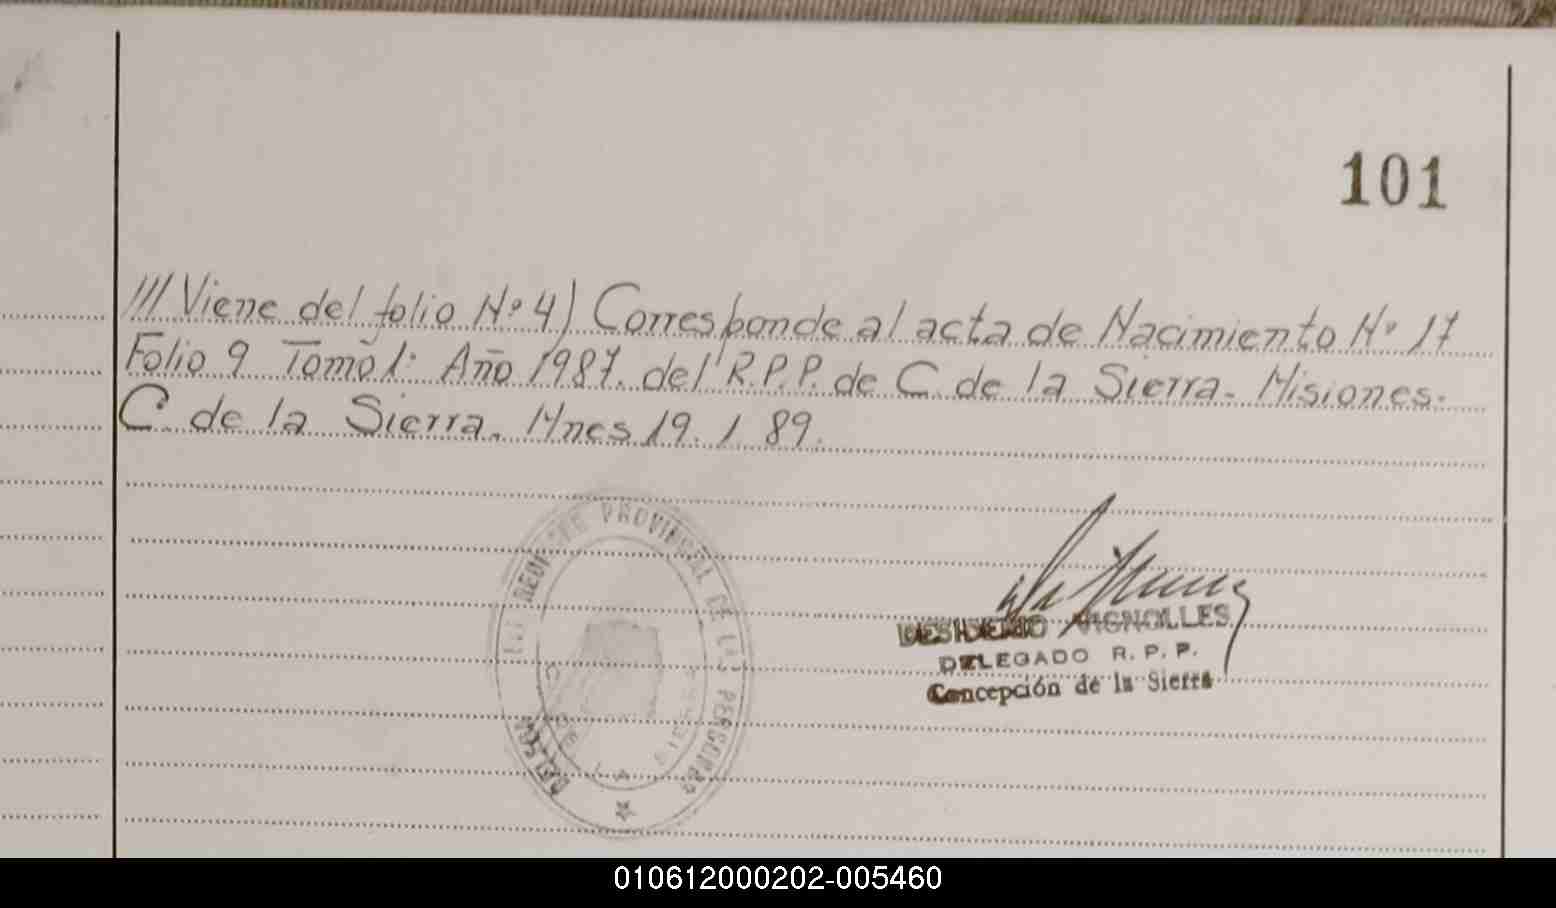 101
/// Viene del folio Nº 4) Corresponde al acta de Nacimiento Nº 17
Folio 9 Tomo 1: Año 1987. del R.P.P. de C. de la Sierra. Misiones.
C. de la Sierra. Mnes 19. 1 89.
REGISTRO PROVINCIAL DE LAS PERSONAS
DESIDERIO VIGNOLLES
DELEGADO R. P. P.
Concepción de la Sierra
010612000202-005460